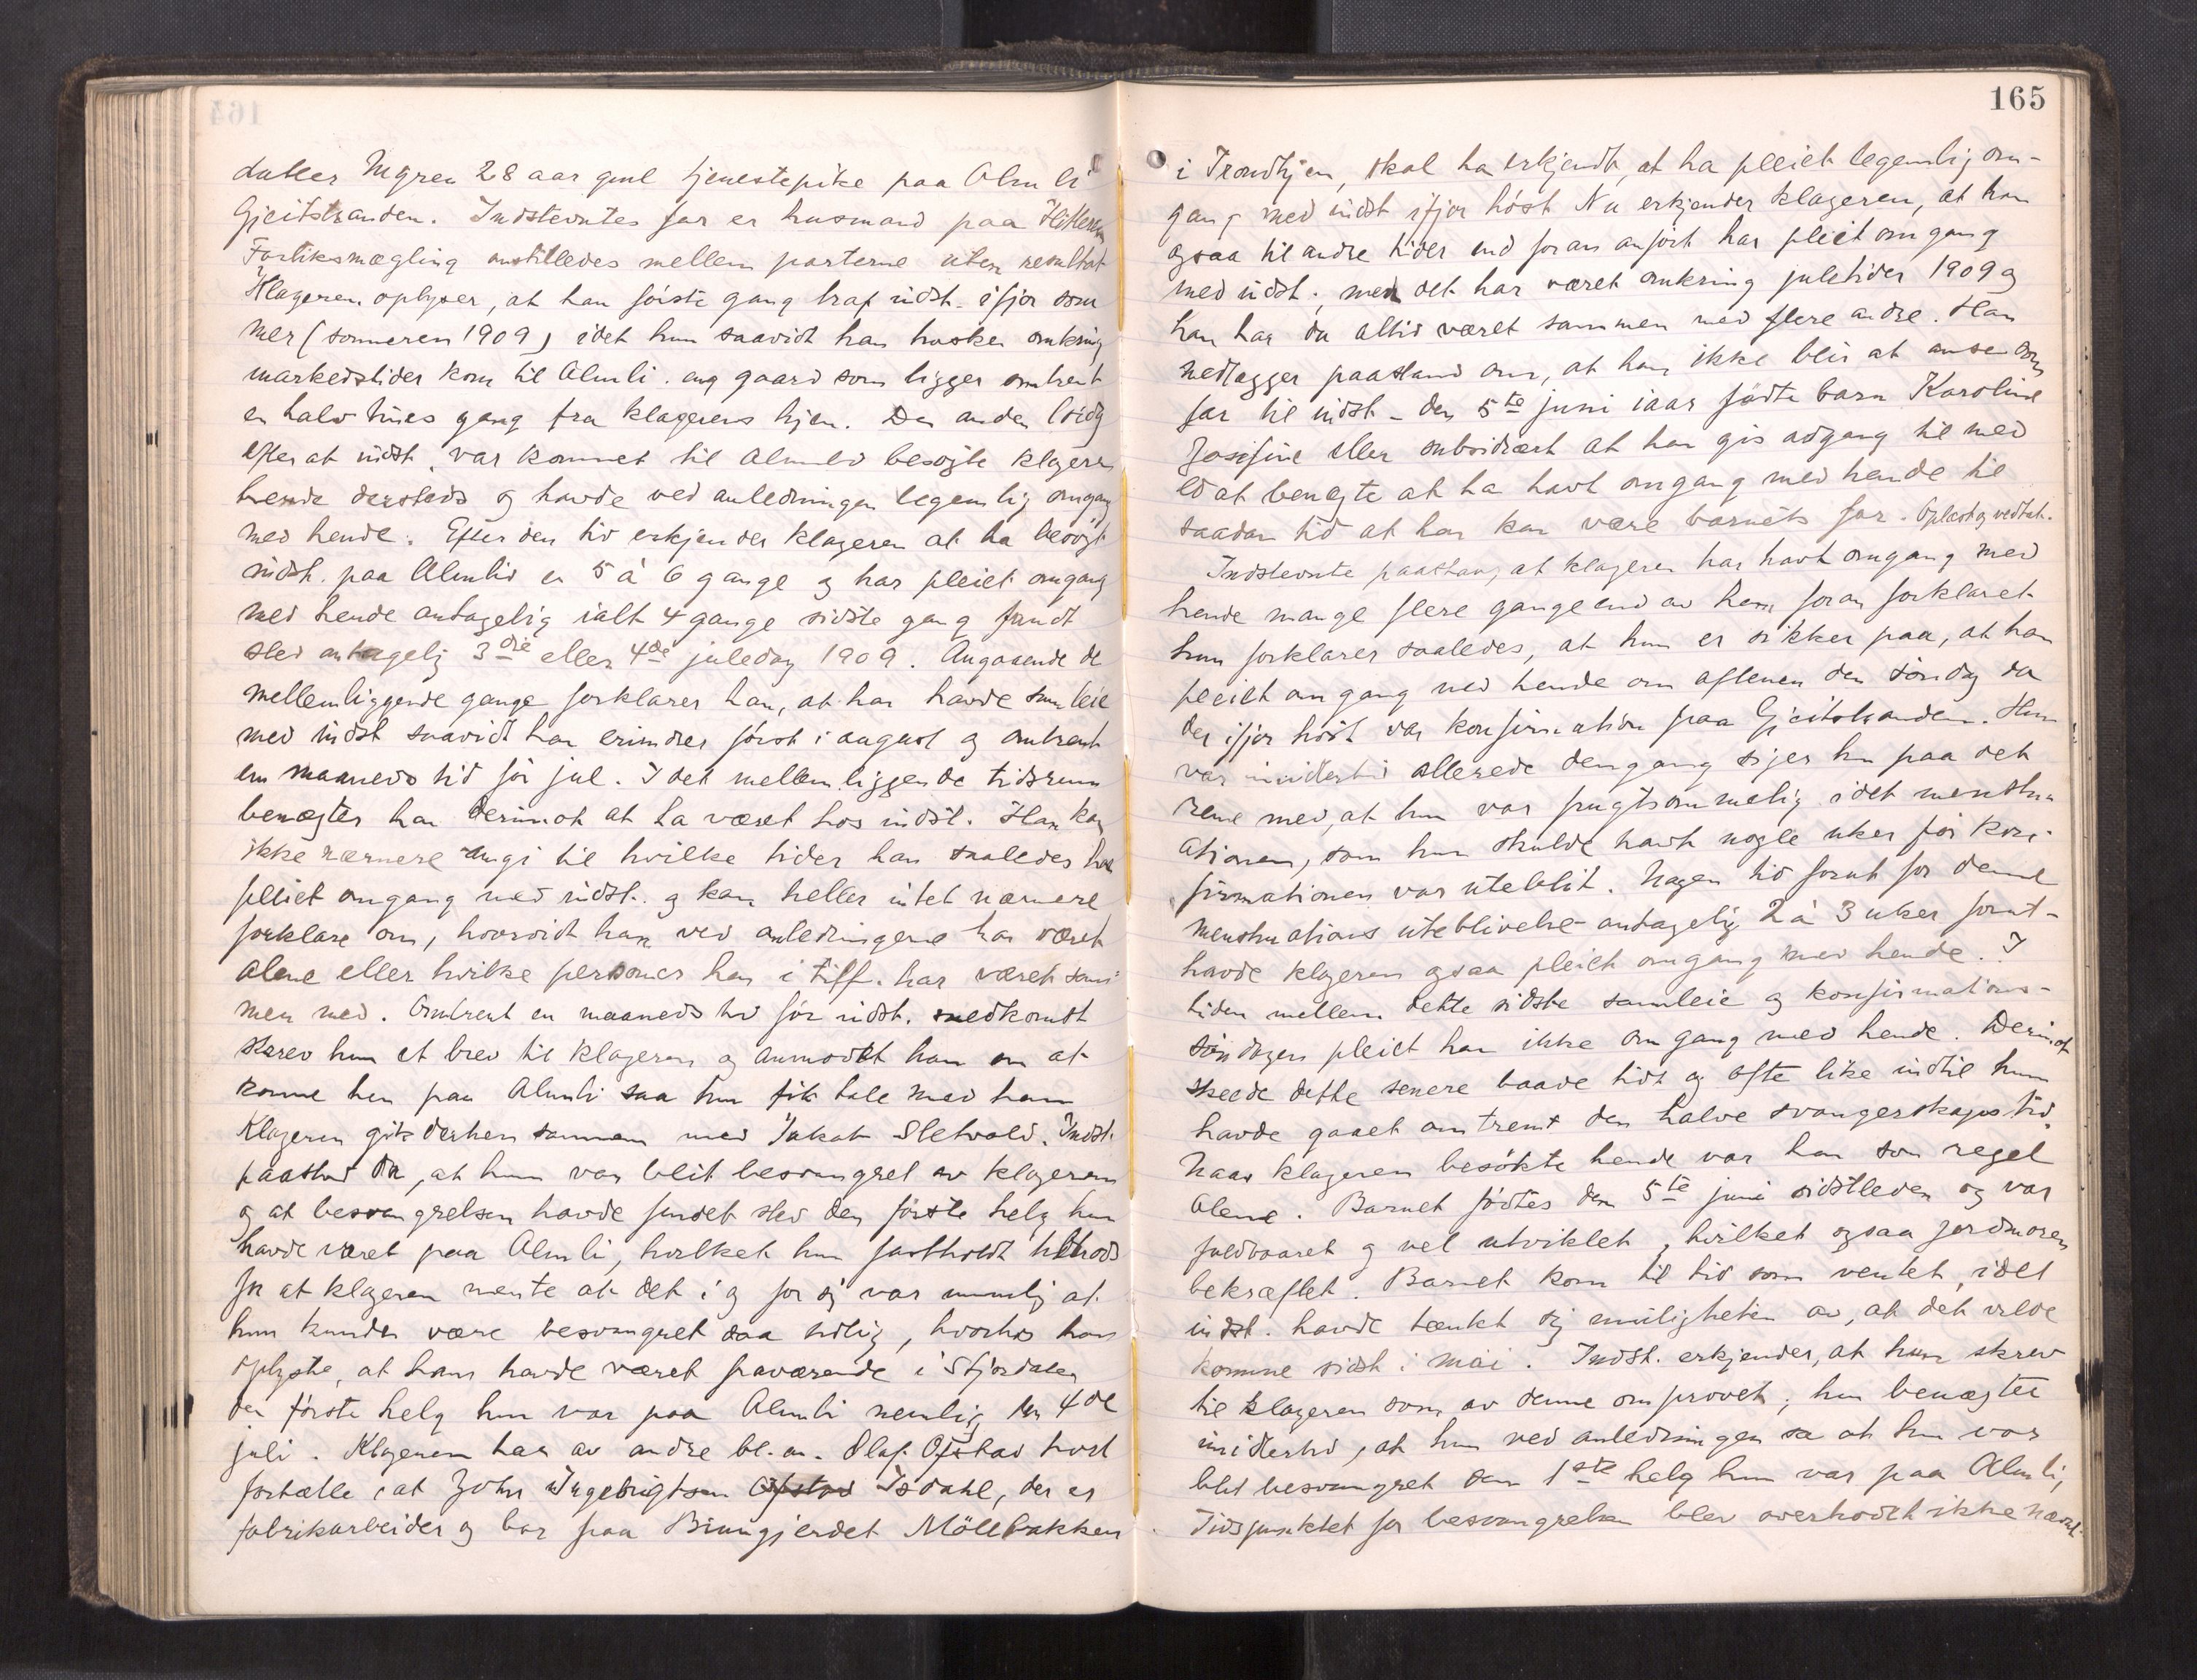 datter Mgren 28 aar gml tjenestepike paa Almli
Gjeitstranden. Indstevntes far er husmand paa Hitteren
Forliksmægling anstilledes mellem parterne uten resultat
Klageren oplyser, at han første gang traf indst. ifjor som
mer (sommeren 1909) idet hun saavidt han husker omkring
markedstider kom til Almli. en gaard som ligger omtrent
en halv times gang fra klagerens hjem. Den anden lördag
efter at indst. var kommet til Almli besøgte klageren
hende dersteds og havde ved anledningen legemlig omgang
med hende. Efter den tid erkjender klageren at ha besøgt
indst. paa Almlid en 5 à 6 gange og har pleiet omgang
med hende antagelig ialt 4 gange sidste gang fandt
sted antagelig 3die eller 4de juledag 1909. Angaaende de
mellemliggende gange forklarer han, at han havde samleie
med indst saavidt han erindrer först i august og omtrent
en maaneds tid för jul. I det mellemliggende tidsrum
benægter han derimot at ha været hos indst. Han kan
ikke nærmere angi til hvilke tider han saaledes har
pleiet omgang med indst. og kan heller intet nærmere
forklare om, hvorvidt han ved anledningene har været
alene eller hvilke personer han i tilf. har været sam
men med. Omtrent en maaneds tid för indst. nedkomst
skrev hun et brev til klageren og anmodet ham om at
komme hen paa Almli saa hun fik tale med ham
Klageren gik derhen sammen med Jakob Sletvold. Indst.
paastod da, at hun var blit besvangret av klageren
og at besvangrelsen havde fundet sted den förste helg hun
havde været paa Almli, hvilket hun fastholdt tiltrods
for at klageren mente at det i og for sig var umulig at
hun kunde være besvangret saa tidlig, hvorhos han
oplyste, at han havde været fraværende i Stjördalen
den förste helg hun var paa Almli nemlig den 4de
juli. Klageren har av andre bl. an. Olaf Opstad hört
fortælle, at John Ingebrigtsen Opstad Isdahl, der er
fabrikarbeider og bor paa Brungjerdet Möllebakken
165
i Trondhjem, skal ha erkjendt, at ha pleiet legemlig om-
gang med indst ifjor höst Nu erkjender klageren, at han
ogsaa til andre tider end foran anført har pleiet omgang
med indst.; men det har været omkring juletider 1909 og
han har da altid været sammen med flere andre. Han
nedlægger paastand om, at han ikke blir at anse som
far til indst- den 5te juni iaar födte barn Karoline
Josefine eller subsidiært at han gis adgang til med
ed at benægte at ha havt omgang med hende til
saadan tid at han kan være barnets far. Oplæst og vedtat.
Indstevnte paastaar, at klageren har havt omgang med
hende mange flere gange end av ham foran forklaret
hun forklarer saaledes, at hun er sikker paa, at han
pleiet omgang med hende om aftenen den söndag da
der ifjor höst var konfirmation paa Gjeitstranden. Hun
var imidlertid allerede dengang siger hun paa det
rene med, at hun var frugtsommelig idet menstru
ationen, som hun skulde havt nogle uker för kon-
firmationen var uteblit. Nogen tid forut for denne
menstruations uteblivelse antagelig 2 à 3 uker forut-
havde klageren ogsaa pleiet omgang med hende. I
tiden mellem dette sidste samleie og konfirmations-
söndagen pleiet han ikke omgang med hende. Derimot
skeede dette senere baade tidt og ofte like indtil hun
havde gaaet omtrent den halve svangerskapstid.
Naar klageren besökte hende var han som regel
alene. Barnet födtes den 5te juni sidstleden og var
fuldbaaret og vel utviklet, hvilket ogsaa jordmoren
bekræftet. Barnet kom til tid som ventet, idet
indst. havde tænkt sig muligheten av, at det vilde
komme sidst i mai. Indst. erkjender, at hun skrev
til klageren som av denne omprovet; hun benægter
imidlertid, at hun ved anledningen sa at hun var
blit besvangret den 1ste helg hun var paa Almli,
Tidspunktet for besvangrelsen blev overhodet ikke nævnt.